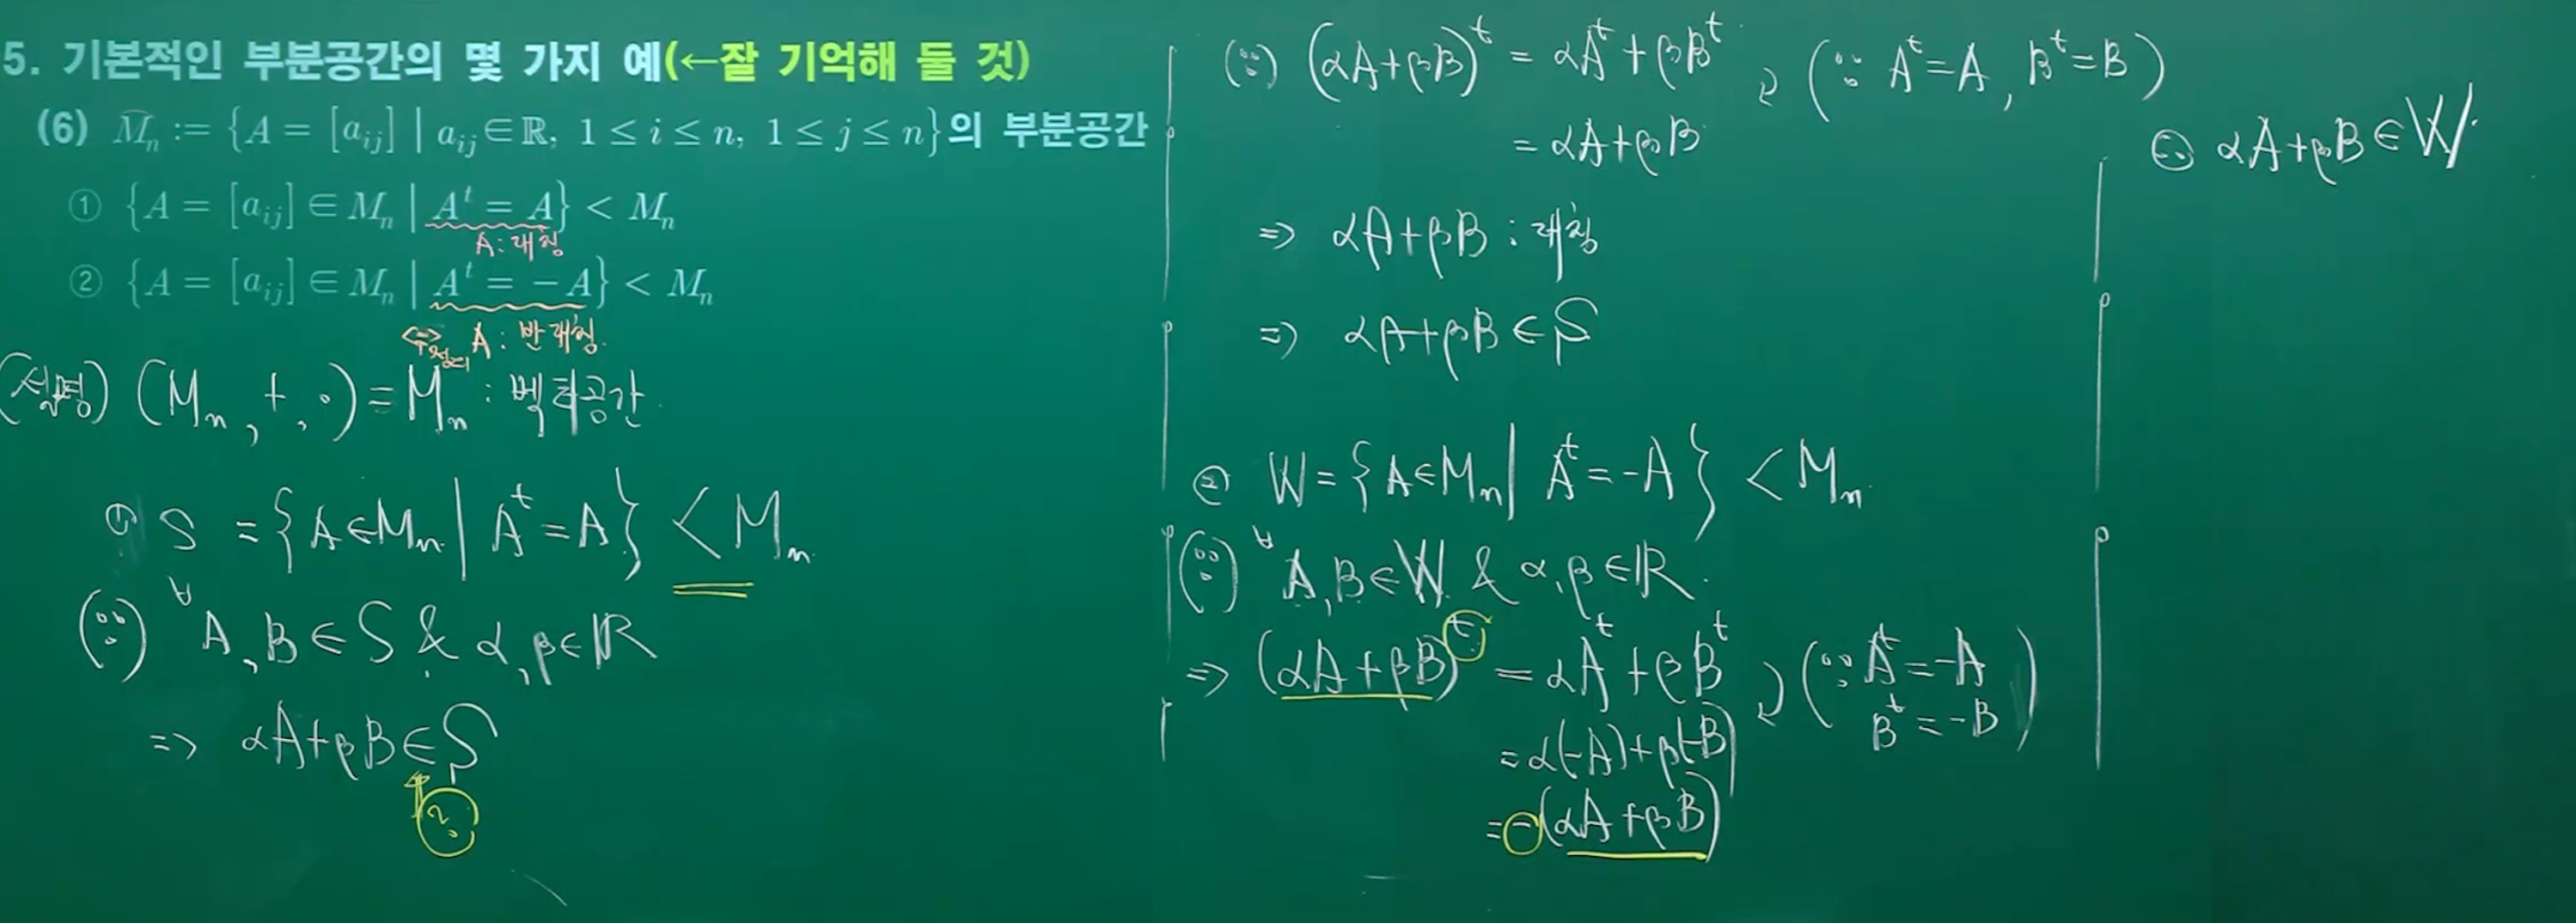 5. 기본적인 부분공간의 몇 가지 예(←잘 기억해 둘 것)
(6) M_n := {A = [a_ij] | a_ij ∈ ℝ, 1 ≤ i ≤ n, 1 ≤ j ≤ n}의 부분공간
① {A = [a_ij] ∈ M_n | A^t = A} < M_n
A : 대칭
② {A = [a_ij] ∈ M_n | A^t = −A} < M_n
⇔ 정의 A : 반대칭.
(설명) (M_n, +, ·) = M_n : 벡터공간
① S = {A ∈ M_n | A^t = A} < M_n.
(∵) ∀A, B ∈ S & α, β ∈ ℝ
⇒ αA+βB ∈ S
?
(∵) (αA+βB)^t = αA^t + βB^t (∵ A^t = A, B^t = B)
= αA+βB
⇒ αA+βB : 대칭
⇒ αA+βB ∈ S
② W = {A ∈ M_n | A^t = −A} < M_n
(∵) ∀A, B ∈ W & α, β ∈ ℝ.
⇒ (αA+βB)^t = αA^t + βB^t (∵ A^t = −A
B^t = −B)
= α(−A)+β(−B)
= −(αA+βB)
∴ αA+βB ∈ W.